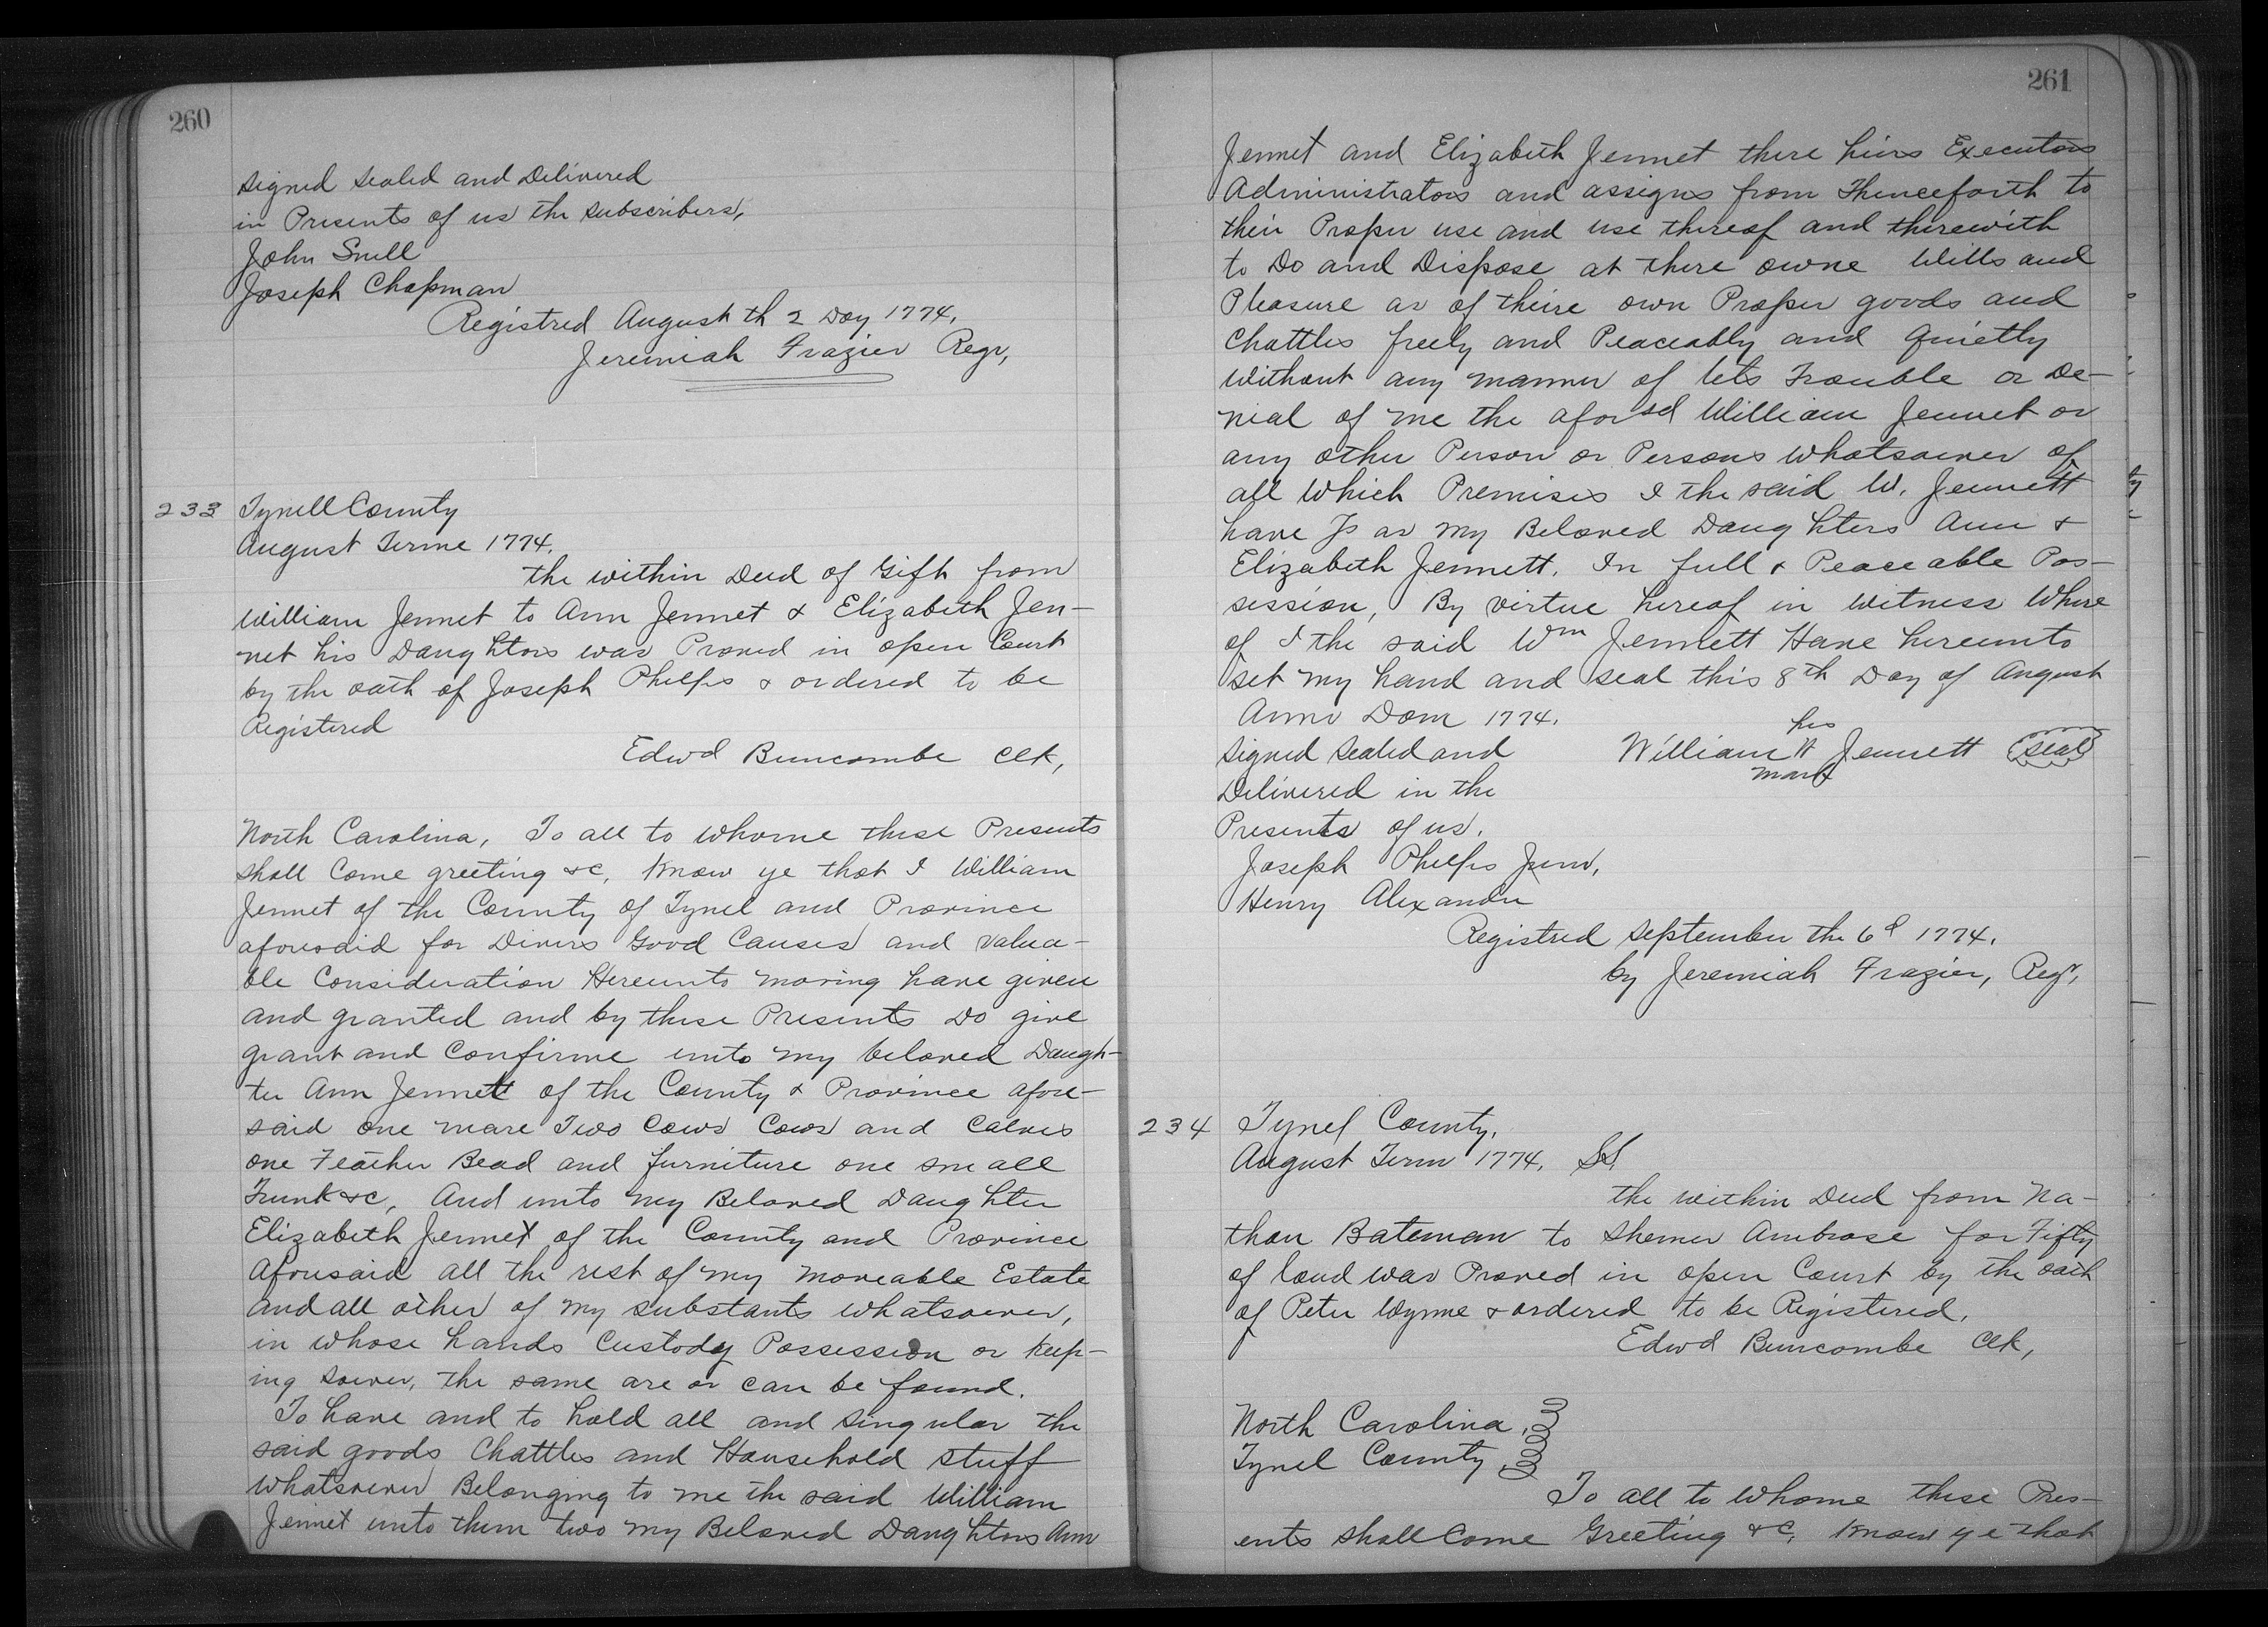 260
signed sealed and Delivered
in Presents of us the subscribers,
John Snell
Joseph Chapman
Registred August th 2 Day 1774,
Jeremiah Frazier Regr,
233 Tyrell County
August Terme 1774.
the within Deed of Gift from
William Jennet to Ann Jennet & Elizabeth Jen-
net his Daughters was Proved in open Court
by the oath of Joseph Phelps & ordered to be
Registered
Edwd Buncombe Clk,
North Carolina, To all to whome these Presents
shall Come greeting &c, Know ye that I William
Jennet of the County of Tyrel and Province
aforesaid for Divers Good Causes and valua-
ble Consideration Hereunto moving have given
and granted and by these Presents Do give
grant and Confirme unto my beloved Daugh-
ter Ann Jennett of the County & Province afore-
said one mare Two Cows Cows and Calves
one Feather Bead and furniture one small
Trunk &c, And unto my Beloved Daughter
Elizabeth Jennet of the County and Province
Aforesaid all the rest of my moveable Estate
and all other of my substants whatsoever,
in whose hands Custody Possession or keep-
ing soever, the same are or can be found.
To have and to hold all and singular the
said goods Chattles and Household stuff
whatsoever Belonging to me the said William
Jennet unto them two my Beloved Daughters Ann
261
Jennet and Elizabeth Jennet there heirs Executors
Administrators and assigns from Thenceforth to
their Proper use and use thereof and therewith
to Do and Dispose at there owne Wills and
Pleasure as of theire own Proper goods and
Chattles freely and Peaceably and Quietly
without any manner of lets Trouble or De-
nial of me the aforsd William Jennet or
any other Person or Persons whatsoever of
all which Premises I the said W. Jennett
have as my Beloved Daughters Ann &
Elizabeth Jennett. In full & Peaceable Pos-
session, By virtue hereof in witness where
of I the said Wm Jennett Have hereunto
set my hand and seal this 8th Day of August
Anno Dom 1774.
his
signed sealed and William Jennett seal
mark
Delivered in the
Presents of us.
Joseph Phelps Junr,
Henry Alexander
Registred September the 6d 1774.
by Jeremiah Frazier, Regr,
234 Tyrel County,
August Term 1774, SS
the within Deed from Na-
than Bateman to Shemer Ambrose for Fifty
of land was Proved in open Court by the oath
of Peter Wynne & ordered to be Registered.
Edwd Buncombe Clk,
North Carolina,
Tyrel County,
To all to whome these Pres-
ents shall Come Greeting &c, Know ye that